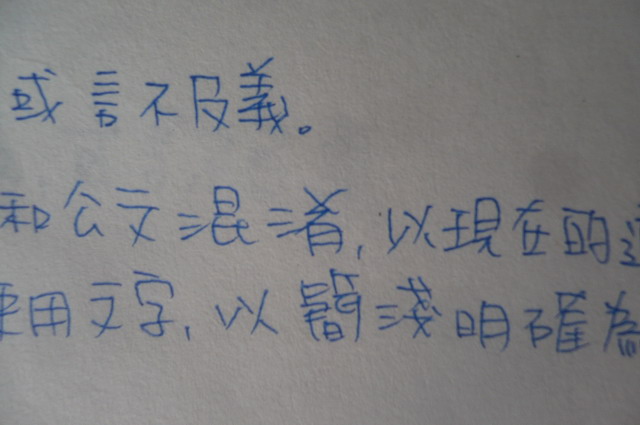 或言不及義。
和公文混淆,以現在的
用文字,以簡淺明確為